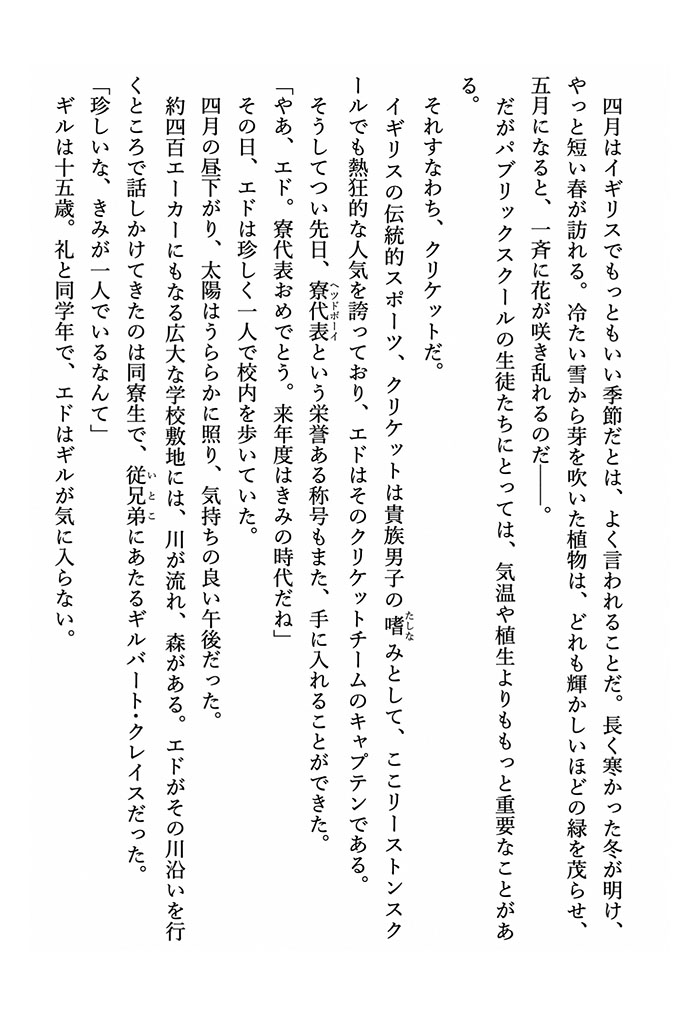 四月はイギリスでもっともいい季節だとは、よく言われることだ。長く寒かった冬が明け、
やっと短い春が訪れる。冷たい雪から芽を吹いた植物は、どれも輝かしいほどの緑を茂らせ、
五月になると、一斉に花が咲き乱れるのだ――。
だがパブリックスクールの生徒たちにとっては、気温や植生よりももっと重要なことがあ
る。
それすなわち、クリケットだ。
イギリスの伝統的スポーツ、クリケットは貴族男子の嗜みとして、ここリーストンスク
ールでも熱狂的な人気を誇っており、エドはそのクリケットチームのキャプテンである。
そうしてつい先日、寮代表という栄誉ある称号もまた、手に入れることができた。
「やあ、エド。寮代表おめでとう。来年度はきみの時代だね」
その日、エドは珍しく一人で校内を歩いていた。
四月の昼下がり、太陽はうららかに照り、気持ちの良い午後だった。
約四百エーカーにもなる広大な学校敷地には、川が流れ、森がある。エドがその川沿いを行
くところで話しかけてきたのは同寮生で、従兄弟にあたるギルバート・クレイスだった。
「珍しいな、きみが一人でいるなんて」
ギルは十五歳。礼と同学年で、エドはギルが気に入らない。
たしな
ヘッドボーイ
いとこ